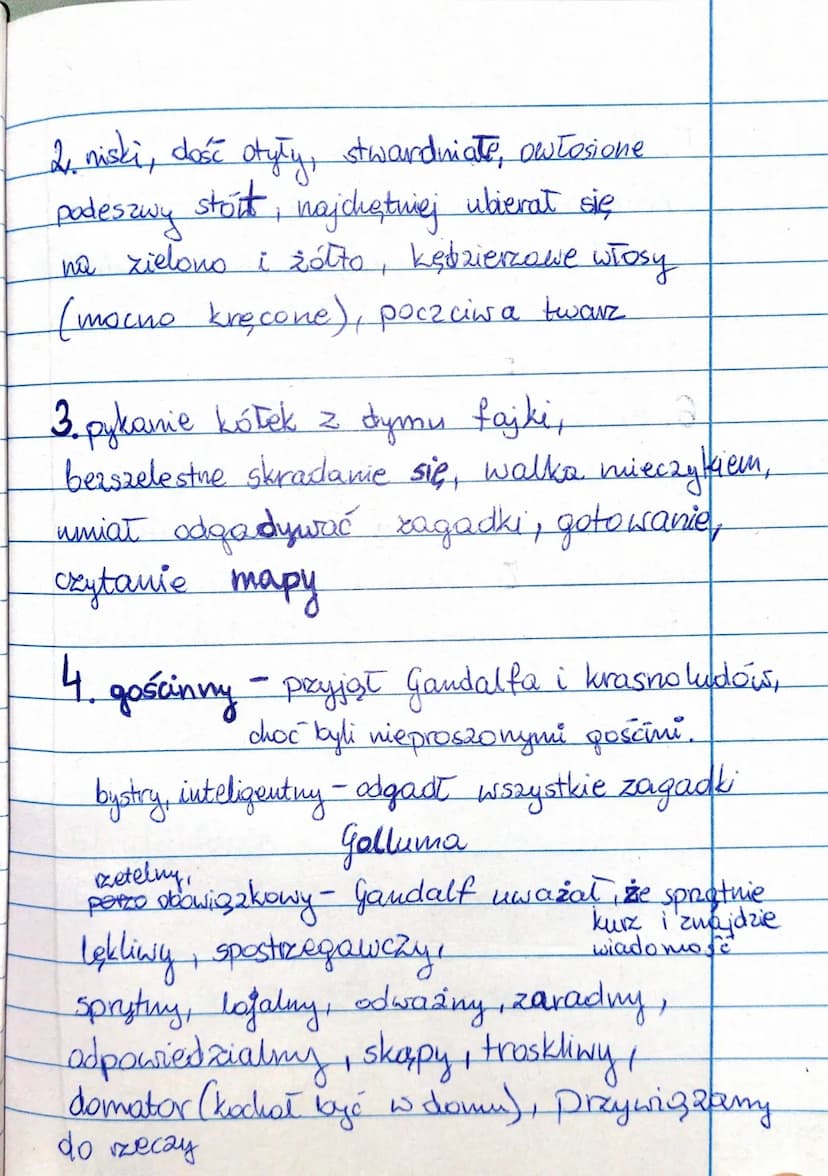 2. niski, dość otyły, stwardniałe, owłosione
podeszwy stóp, najchętniej ubierał się
na zielono i żółto, kędzierzawe włosy
(mocno kręcone), poczciwa twarz
3. pykanie kółek z dymu fajki,
bezszelestne skradanie się, walka mieczykiem,
umiał odgadywać zagadki, gotowanie,
czytanie mapy
4. gościnny - przyjął Gandalfa i krasnoludów,
choć byli nieproszonymi gośćmi.
bystry, inteligentny - odgadł wszystkie zagadki
Golluma
rzetelny,
obowiązkowy - Gandalf uważał, że sprzątnie
kurz i znajdzie
wiadomość
lękliwy, spostrzegawczy,
sprytny, lojalny, odważny, zaradny,
odpowiedzialny, skąpy, troskliwy,
domator (kochał być w domu), przywiązany
do rzeczy